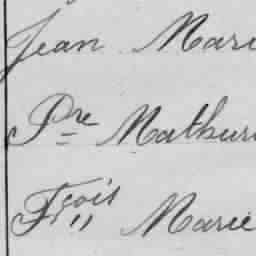 Jean Marie
Pre Mathuri
Fçois Marie